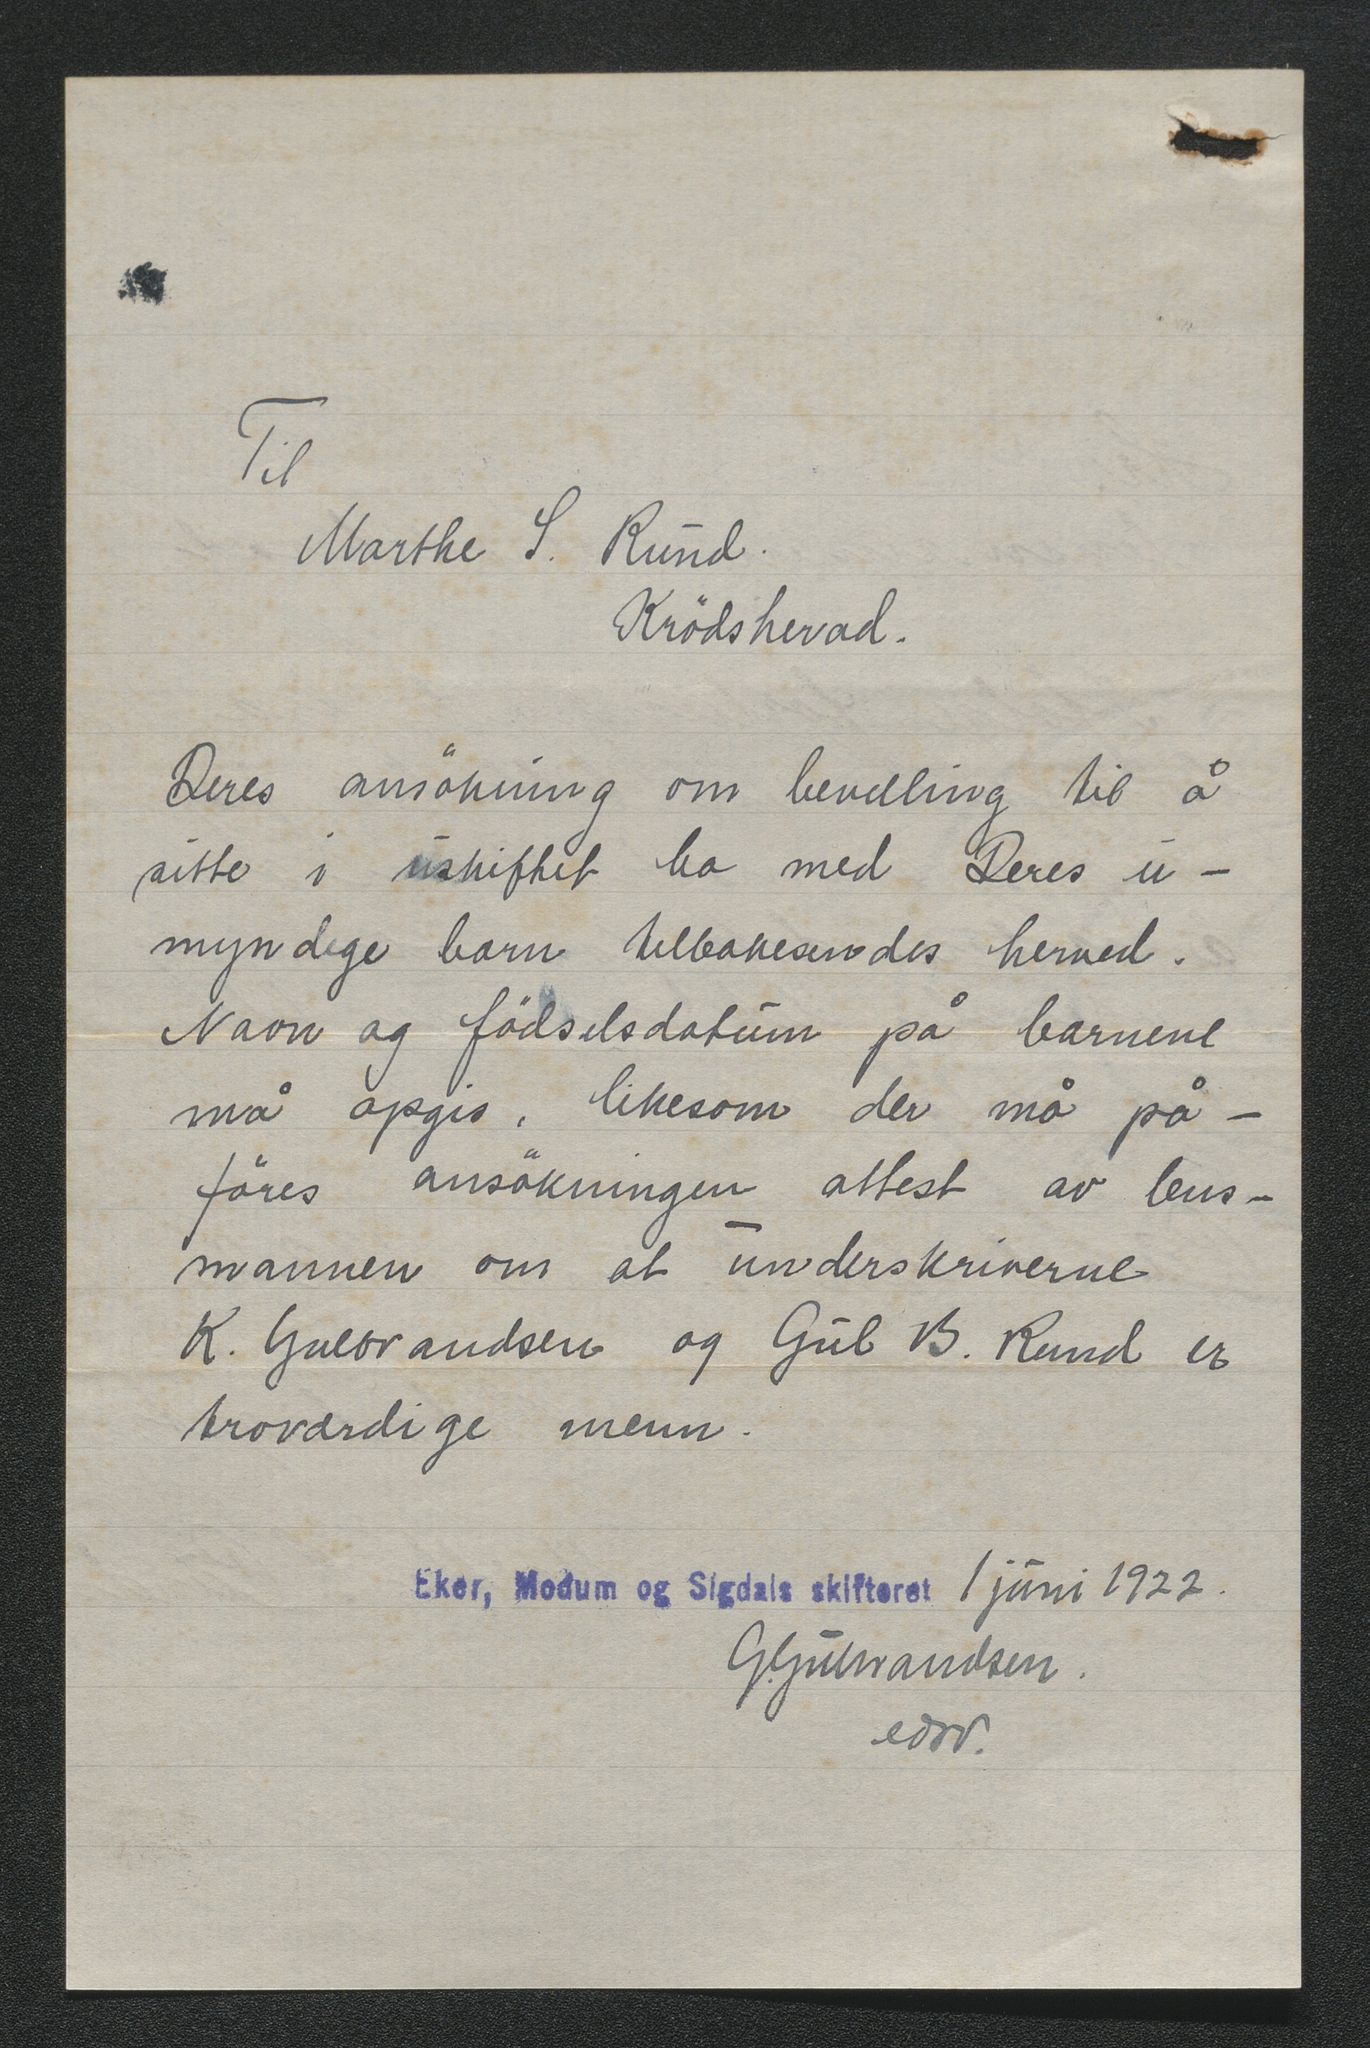 Til
Marthe S. Rund.
Krödsherad.
Deres ansökning om bevilling til å
sitte i uskiftet bo med Deres u-
myndige barn tilbakesendes herved.
Navn og födselsdatum på barnene
må opgis, likesom der må på-
föres ansökningen attest av lens-
mannen om at underskriverne
K. Gulbrandsen og Gul B. Rund er
troværdige menn.
Eker, Modum og Sigdals skifteret 1 juni 1922.
G. Gulbrandsen.